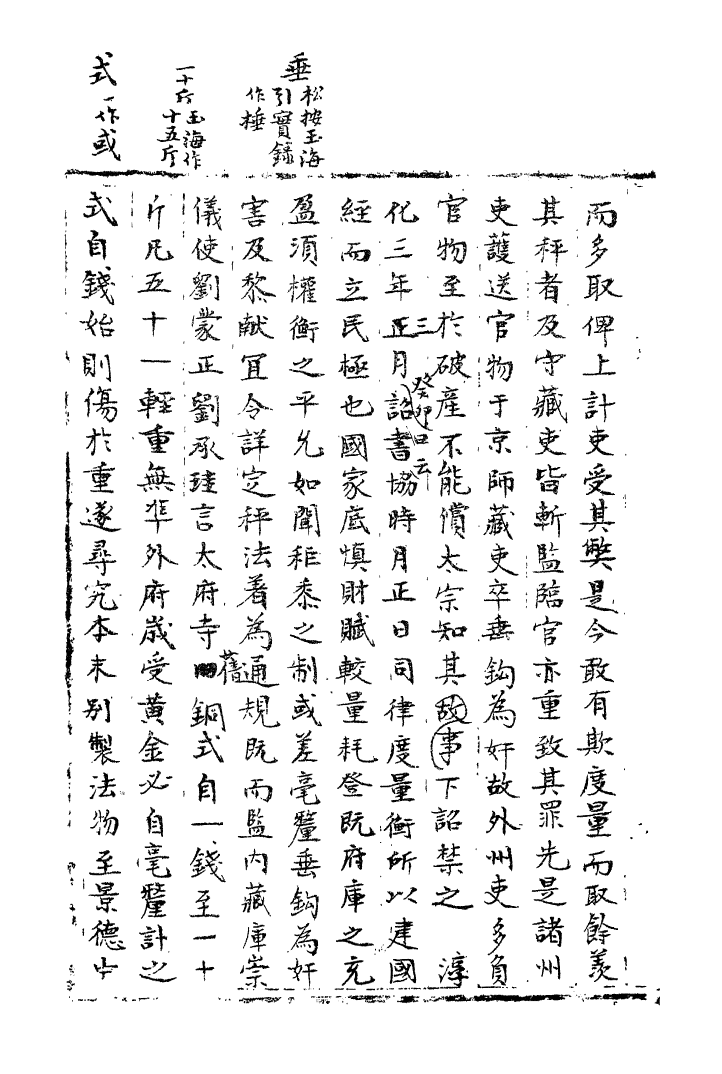 垂松按玉海
引實録
作捶
一十斤玉海作
十五斤
式一作或
而多取俾上計吏受其弊是今敢有欺度量而取餘羨
其秤者及守藏吏皆斬監臨官亦重致其罪先是諸州
吏護送官物于京師藏吏卒垂鈎為奸故外州吏多負
官物至於破產不能償太宗知其故事下詔禁之 淳
化三年正三月癸卯日云詔書協時月正日同律度量衡所以建國
經而立民極也國家底慎財賦較量耗登既府庫之充
盈須權衡之平允如聞秬黍之制或差毫釐垂鈎為奸
害及黎献冝令詳定秤法著為通規既而監内藏庫崇
儀使劉蒙正劉承珪言太府寺舊銅式自一錢至一十
斤凡五十一輕重無凖外府歲受黄金必自毫釐計之
式自錢始則傷於重遂尋究本末别製法物至景德中